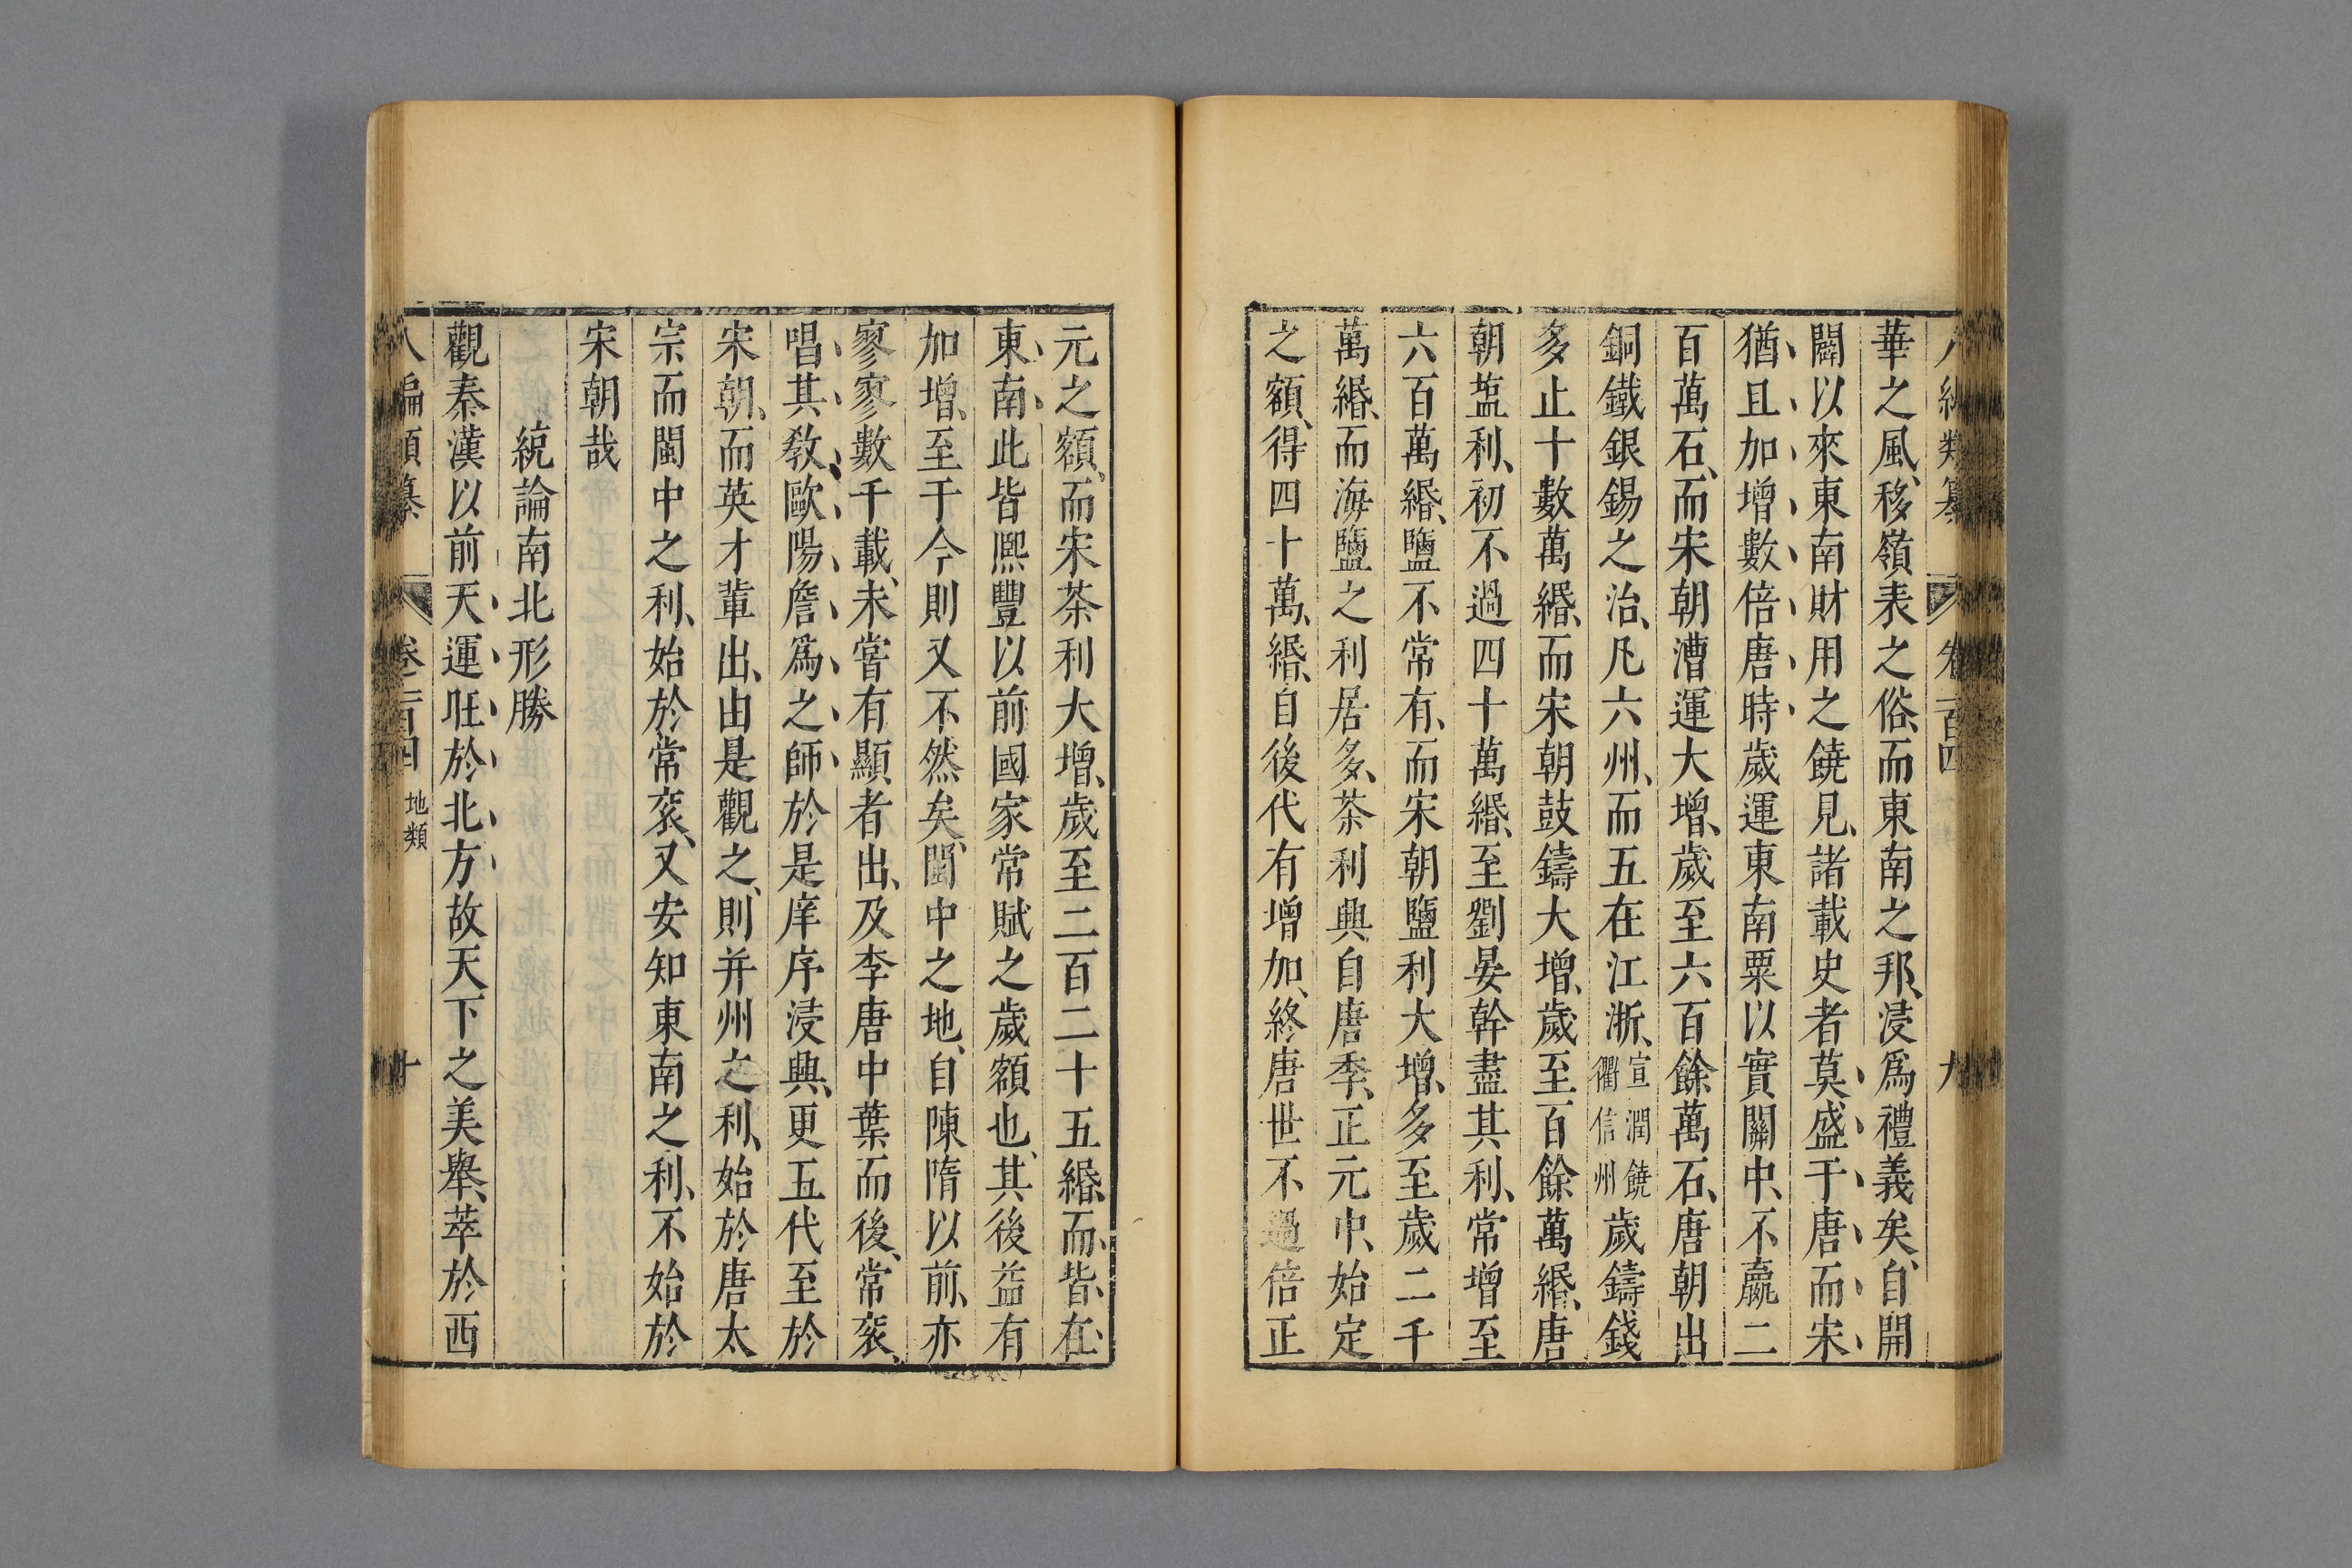 八編類纂 卷一百四 九
華之風、移嶺表之俗、而東南之邦、浸爲禮義矣、自開
闢以來東南財用之饒見、諸載史者莫盛于唐而宋
猶且加增數倍唐時歲運東南粟以實關中、不贏二
百萬石、而宋朝漕運大增、歲至六百餘萬石、唐朝出
銅鐵銀錫之冶、凡六州、而五在江浙、宣潤饒衢信州歲鑄錢
多止十數萬緡、而宋朝鼓鑄大增、歲至百餘萬緡、唐
朝塩利、初不過四十萬緡、至劉晏幹盡其利、常增至
六百萬緡、鹽不常有、而宋朝鹽利大增、多至歲二千
萬緡、而海鹽之利居多、茶利興自唐季、正元中、始定
之額、得四十萬、緡、自後代有增加、終唐世不過倍正
元之額、而宋茶利大增、歲至二百二十五緡、而皆在
東南、此皆熙豐以前國家常賦之歲額也、其後益有
加增、至于今則又不然矣、閩中之地、自陳隋以前、亦
寥寥數千載、未嘗有顯者出、及李唐中葉而後、常袞、
唱其教、歐陽詹爲之師於是庠序浸興、更五代至於
宋朝、而英才輩出、由是觀之、則并州之利、始於唐太
宗而閩中之利、始於常袞、又安知東南之利、不始於
宋朝哉
統論南北形勝
觀秦漢以前天運旺於北方故天下之美舉、萃於西
八編類纂 卷一百四 地類 十